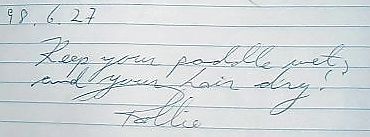 98.6.27
Keep your paddle wet,
and your hair dry!
Pollie